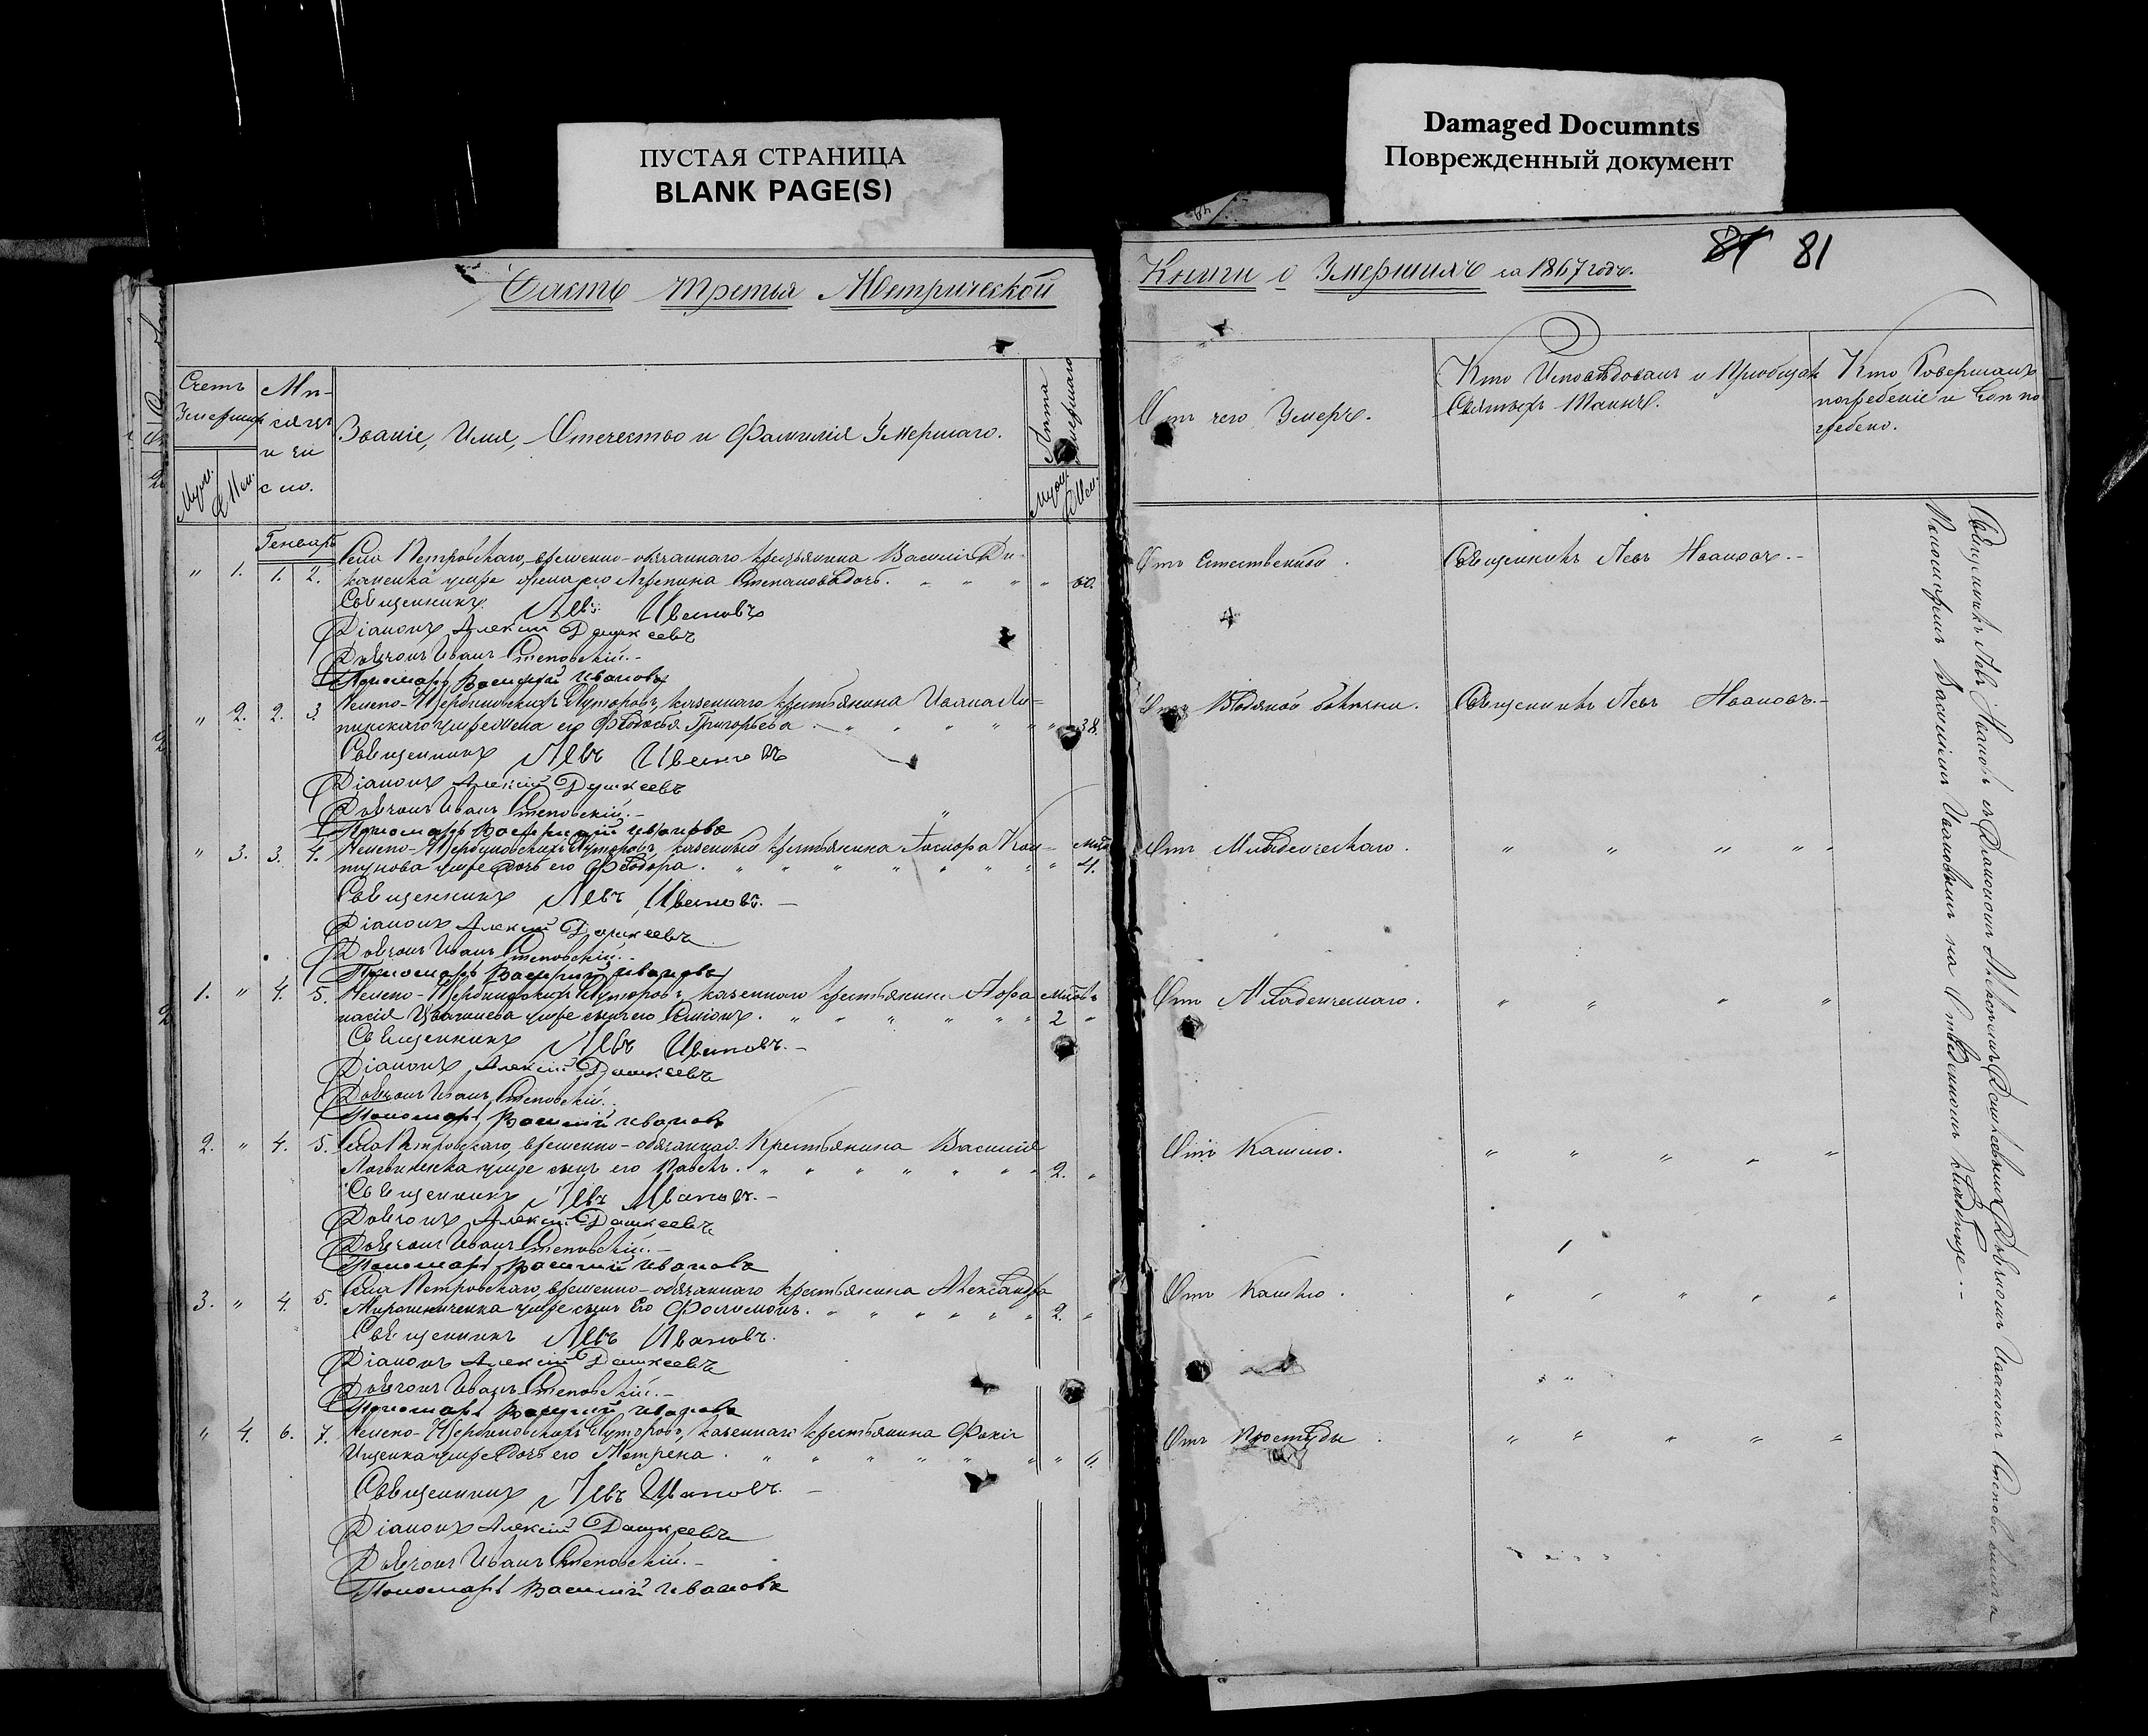 ПУСТАЯ СТРАНИЦА
BLANK PAGE(S)
Damaged Documnts
Поврежденный документ
Часть третья Метрической
Книги о Умершихъ за 1867 годъ.
81 81
Счетъ Умершихъ
Муж. Жен.
Мѣсяцъ и число.
Званіе, Имя, Отечество и Фамилія Умершаго.
Лѣта Умершаго
Муж. Жен.
Отъ чего Умеръ.
Кто Исповѣдовалъ и Пріобщалъ
Святыхъ Таинъ.
Кто Совершалъ
погребеніе и
гребено.
Генварь
" 1. 1. 2. Села Петровскаго, временно-обязаннаго крестьянина Василія Ди-
каненка умре жена его Агрепина Степанова дочь. " 60.
Отъ Естественной. Священникъ Левъ Ивановъ.-
Священникъ Левъ Ивановъ
Діаконъ Алексій Дашкеевъ
Дьячокъ Иванъ Степовскій.-
Пономарь Василій Ивановъ
" 2. 2. 3. Щербиновскихъ Хуторовъ, казеннаго крестьянина Ивана
умре жена его Ѳеодосья Григорьева " 38.
Отъ Водяной болѣзни. Священникъ Левъ Ивановъ.-
Священникъ Левъ Ивановъ
Діаконъ Алексій Дашкеевъ
Дьячокъ Иванъ Степовскій.-
Пономарь Василій Ивановъ
" 3. 3. 4. Щербиновскихъ Хуторовъ, казеннаго крестьянина
умре дочь его Ѳеодора. " 4.
Отъ Младенческаго. " " " "
Священникъ Левъ Ивановъ.-
Діаконъ Алексій Дашкеевъ
Дьячокъ Иванъ Степовскій.-
Пономарь Василій Ивановъ
1. " 4. 5. Щербиновскихъ Хуторовъ, казеннаго крестьянина Афа-
насія умре сынъ его Симіонъ. 2 "
Отъ Младенческаго. " " " "
Священникъ Левъ Ивановъ.-
Діаконъ Алексій Дашкеевъ
Дьячокъ Иванъ Степовскій.
Пономарь Василій Ивановъ
2. " 4. 5. Села Петровскаго, временно-обязаннаго Крестьянина Василія
умре сынъ его Павелъ. 2. "
Отъ Кашлю. " " " "
Священникъ Левъ Ивановъ.-
Алексій Дашкеевъ
Дьячокъ Иванъ Степовскій.-
Пономарь Василій Ивановъ
3. " 4. 5. Села Петровскаго, временно-обязаннаго крестьянина Александра
Мирошниченка умре сынъ его 2. "
Отъ Кашлю. " " " "
Священникъ Левъ Ивановъ.
Діаконъ Алексій Дашкеевъ
Дьячокъ Иванъ Степовскій.-
Пономарь Василій Ивановъ
" 4. 6. 7. Щербиновскихъ Хуторовъ, казеннаго крестьянина Фокія
Ищенка умре дочь его Мотрена. "
Отъ Простуды. " " " "
Священникъ Левъ Ивановъ.-
Діаконъ Алексій Дашкеевъ
Дьячокъ Иванъ Степовскій.-
Пономарь Василій Ивановъ
Священникъ Левъ Ивановъ съ Діакономъ Алексіемъ Дашкеевымъ, Дьячкомъ Иваномъ Степовскимъ и
Пономаремъ Василіемъ Ивановымъ на Отведенномъ кладбищѣ.-